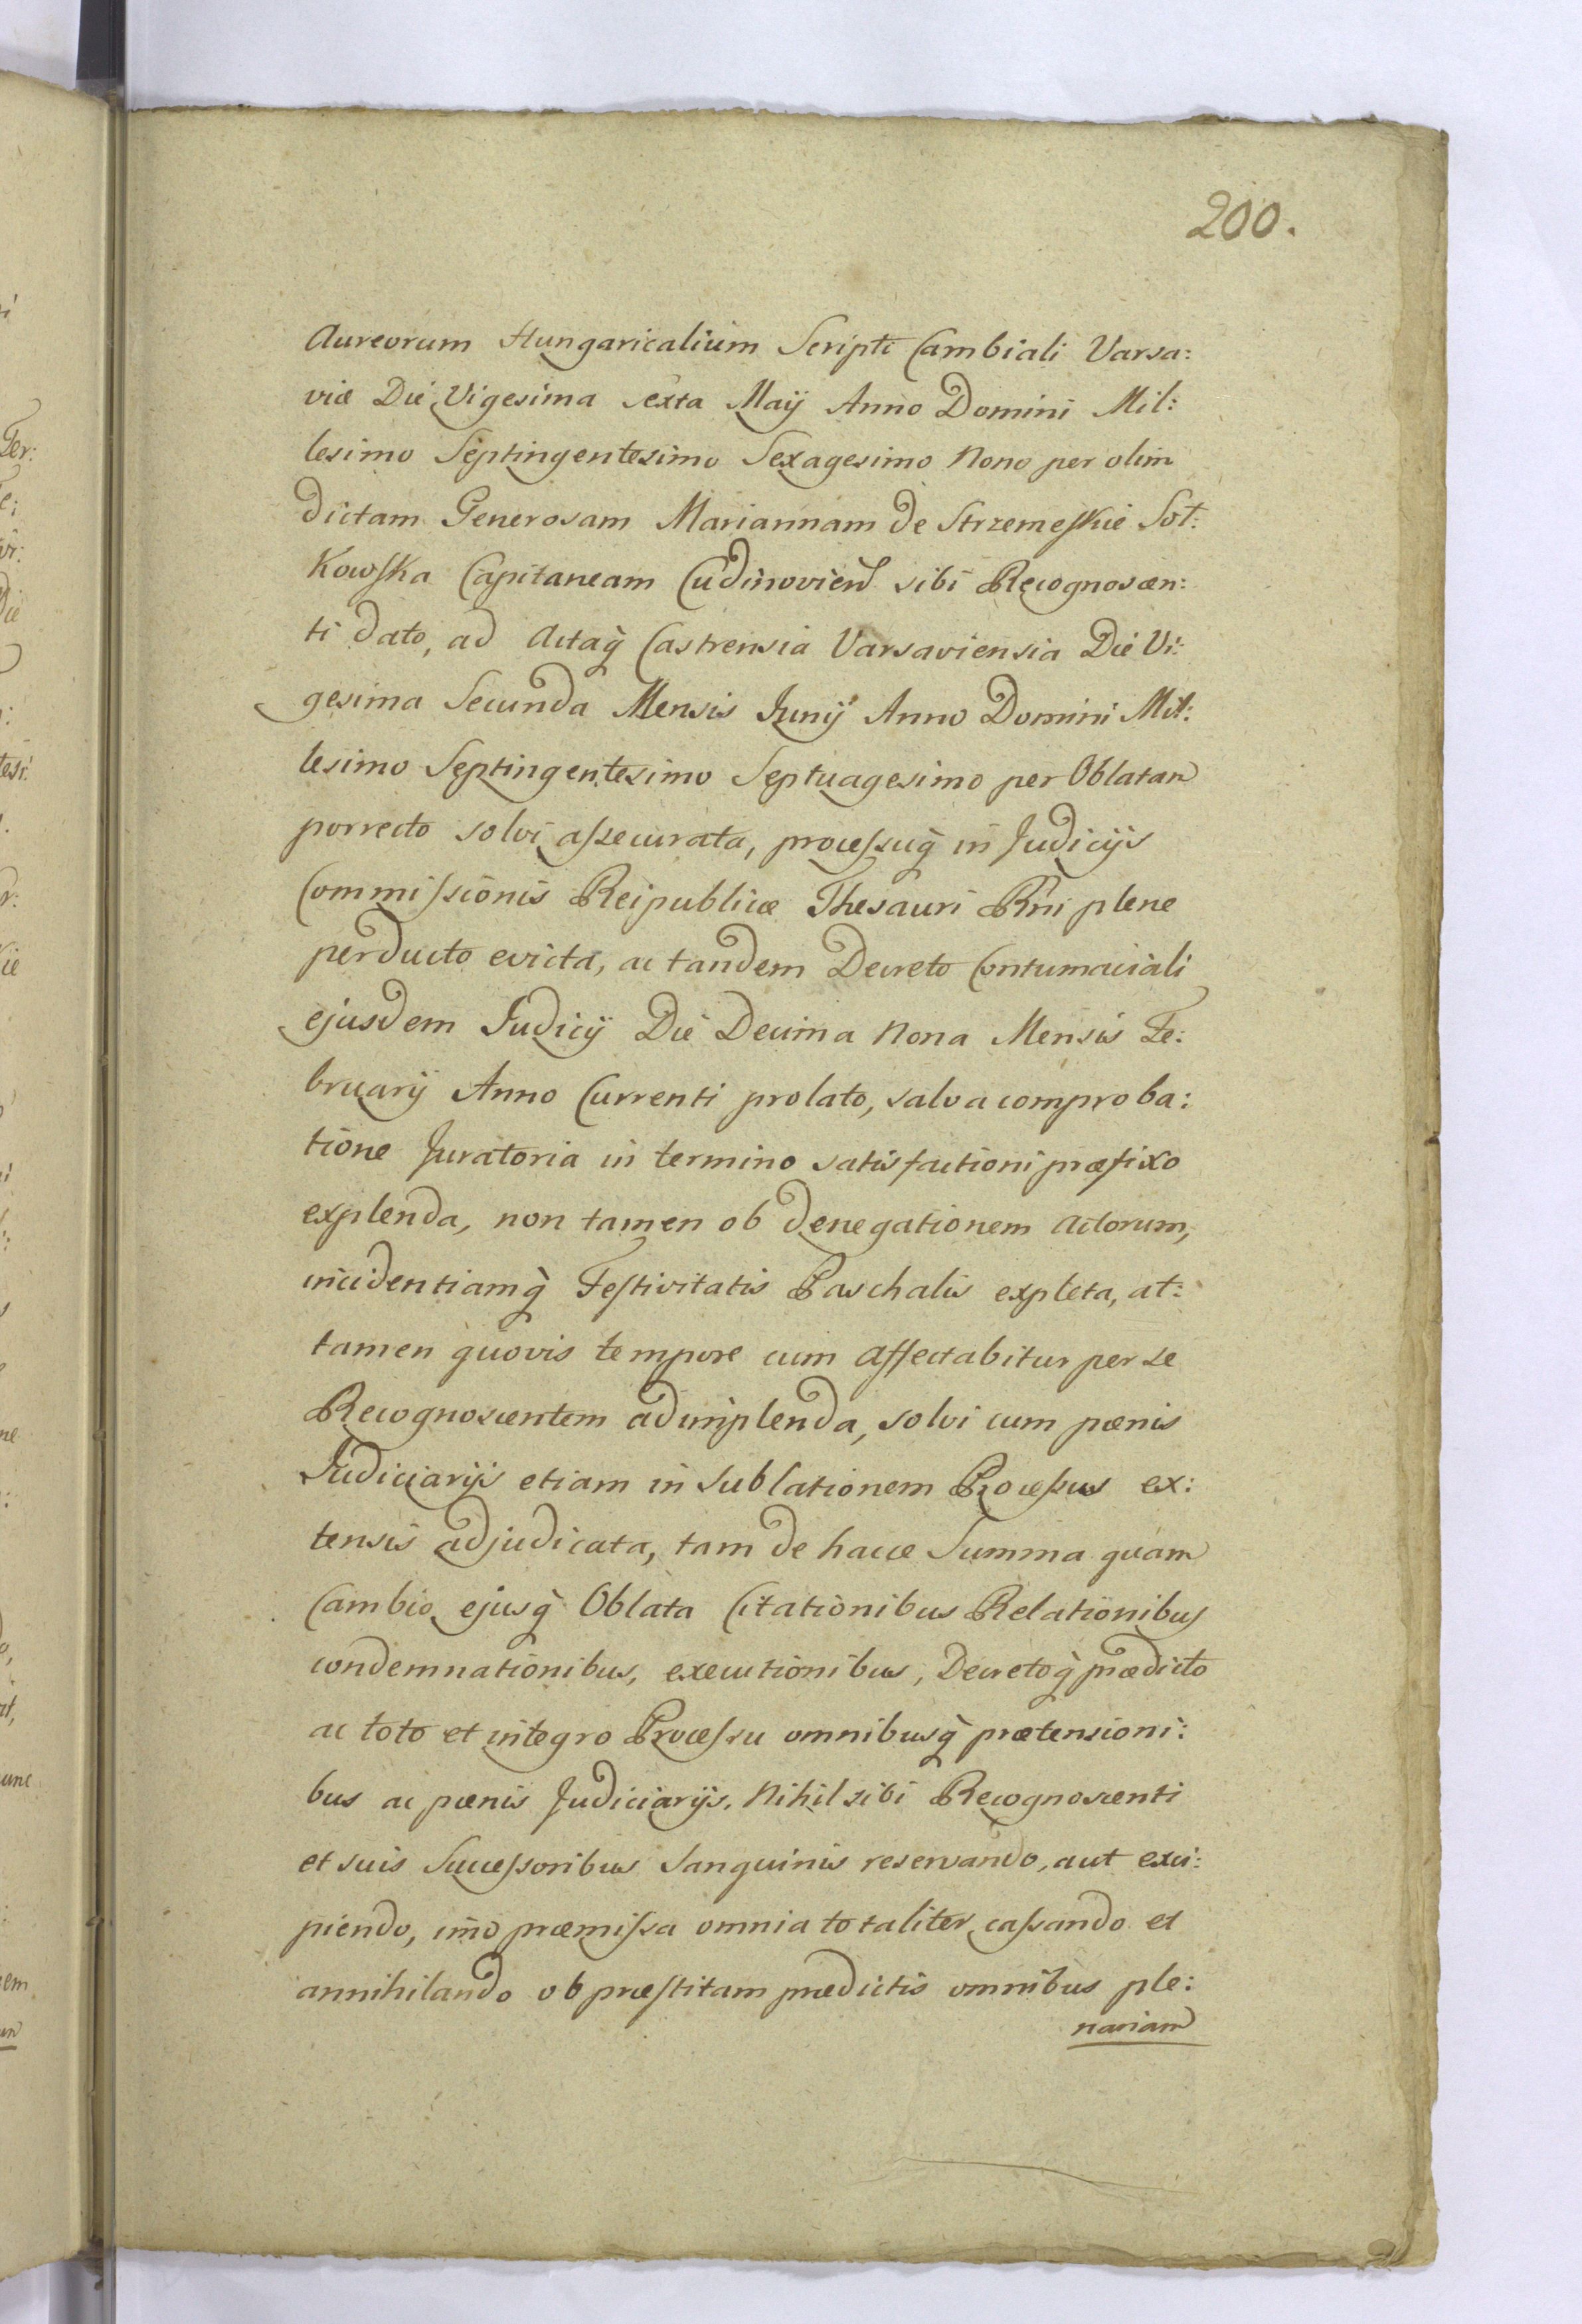 200.
Aureorum Hungaricalium Scripto Cambiali Varsa:
viæ Die Vigesima sexta Maij Anno Domini Mil:
lesimo Septingentesimo Sexagesimo Nono per olim
dictam Generosam Mariannam de Strzemeſkie Sot:
Kowſka Capitaneam Cudinovien̄ sibi Recognoscen:
ti dato, ad Actaq̀ Castrensia Varsaviensia Die Vi:
gesima Secunda Mensis Junij Anno Domini Mil:
lesimo Septingentesimo Septuagesimo per Oblatam
porrecto solvi aſsecurata, proceſsuq̀ in Judicijs
Commiſsionis Reipublicæ Thesauri Rn̄i plene
perducto evicta, ac tandem Decreto Contumaciali
ejusdem Judicij Die Decima Nona Mensis Fe:
bruarij Anno Currenti prolato, salva comproba:
tione Juratoria in termino satisfactioni præfixo
explenda, non tamen ob denegationem Actorum,
incidentiamq̀ Feſtivitatis Paschalis expleta, at:
tamen quovis tempore cum affectabitur per se
Recognoscentem adimplenda, solvi cum pœnis
Judiciarijs etiam in Sublationem Proceſsus ex:
tensis adjudicata, tam de hacce Summa quam
Cambio ejusq̀ Oblata Citationibus Relationibus
condemnationibus, executionibus, Decretoq̀ prædicto
ac toto et integro Proceſsu omnibusq̀ prætensioni:
bus ac pœnis Judiciarijs, Nihil sibi Recognoscenti
et suis Succeſsoribus Sanguinis reservando, aut exci:
piendo, im̄o præmiſsa omnia totaliter caſsando et
annihilando ob præſtitam prædictis omnibus ple:
nariam